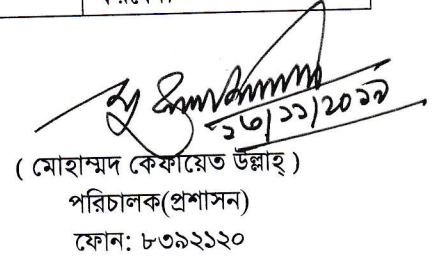 ২৬/১১/2০১৯
( মোহাম্মদ কেফায়েত উল্লাহ্ )
পরিচালক(প্রশাসন)
ফোন: ৮৩৯২১২০